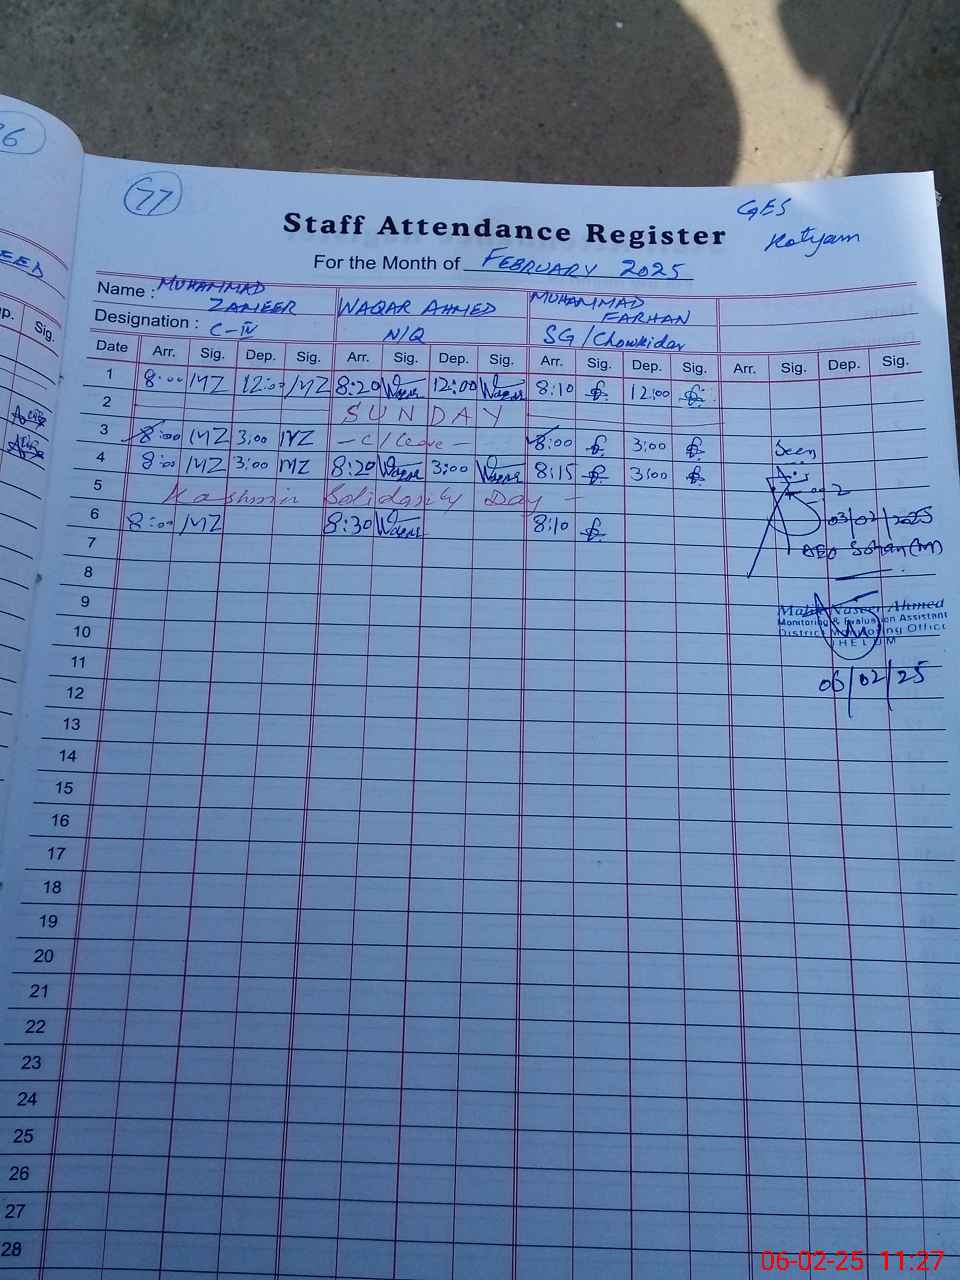 77
GES
Kotyam
Staff Attendance Register
For the Month of FEBRUARY 2025
Name : MUHAMMAD ZAMEER WAQAR AHMED MUHAMMAD FARHAN
Designation : C-IV N/Q SG/Chowkidar
Date Arr. Sig. Dep. Sig. Arr. Sig. Dep. Sig. Arr. Sig. Dep. Sig. Arr. Sig. Dep. Sig.
1 8:00 MZ 12:00 MZ 8:20 Waqar 12:00 Waqar 8:10 12:00
2 SUNDAY
3 8:00 MZ 3:00 MZ - C/Leave - 8:00 3:00
4 8:00 MZ 3:00 MZ 8:20 Waqar 3:00 Waqar 8:15 3:00
5 Kashmir Solidarity Day -
6 8:00 MZ 8:30 Waqar 8:10
7
8
9
10
11
12
13
14
15
16
17
18
19
20
21
22
23
24
25
26
27
28
Seen
03/02/2025
AEO Sohan (M)
Malik Naseer Ahmed
Monitoring & Evaluation Assistant
District Monitoring Office
JHELUM
06/02/25
EED
Sig.
06-02-25 11:27